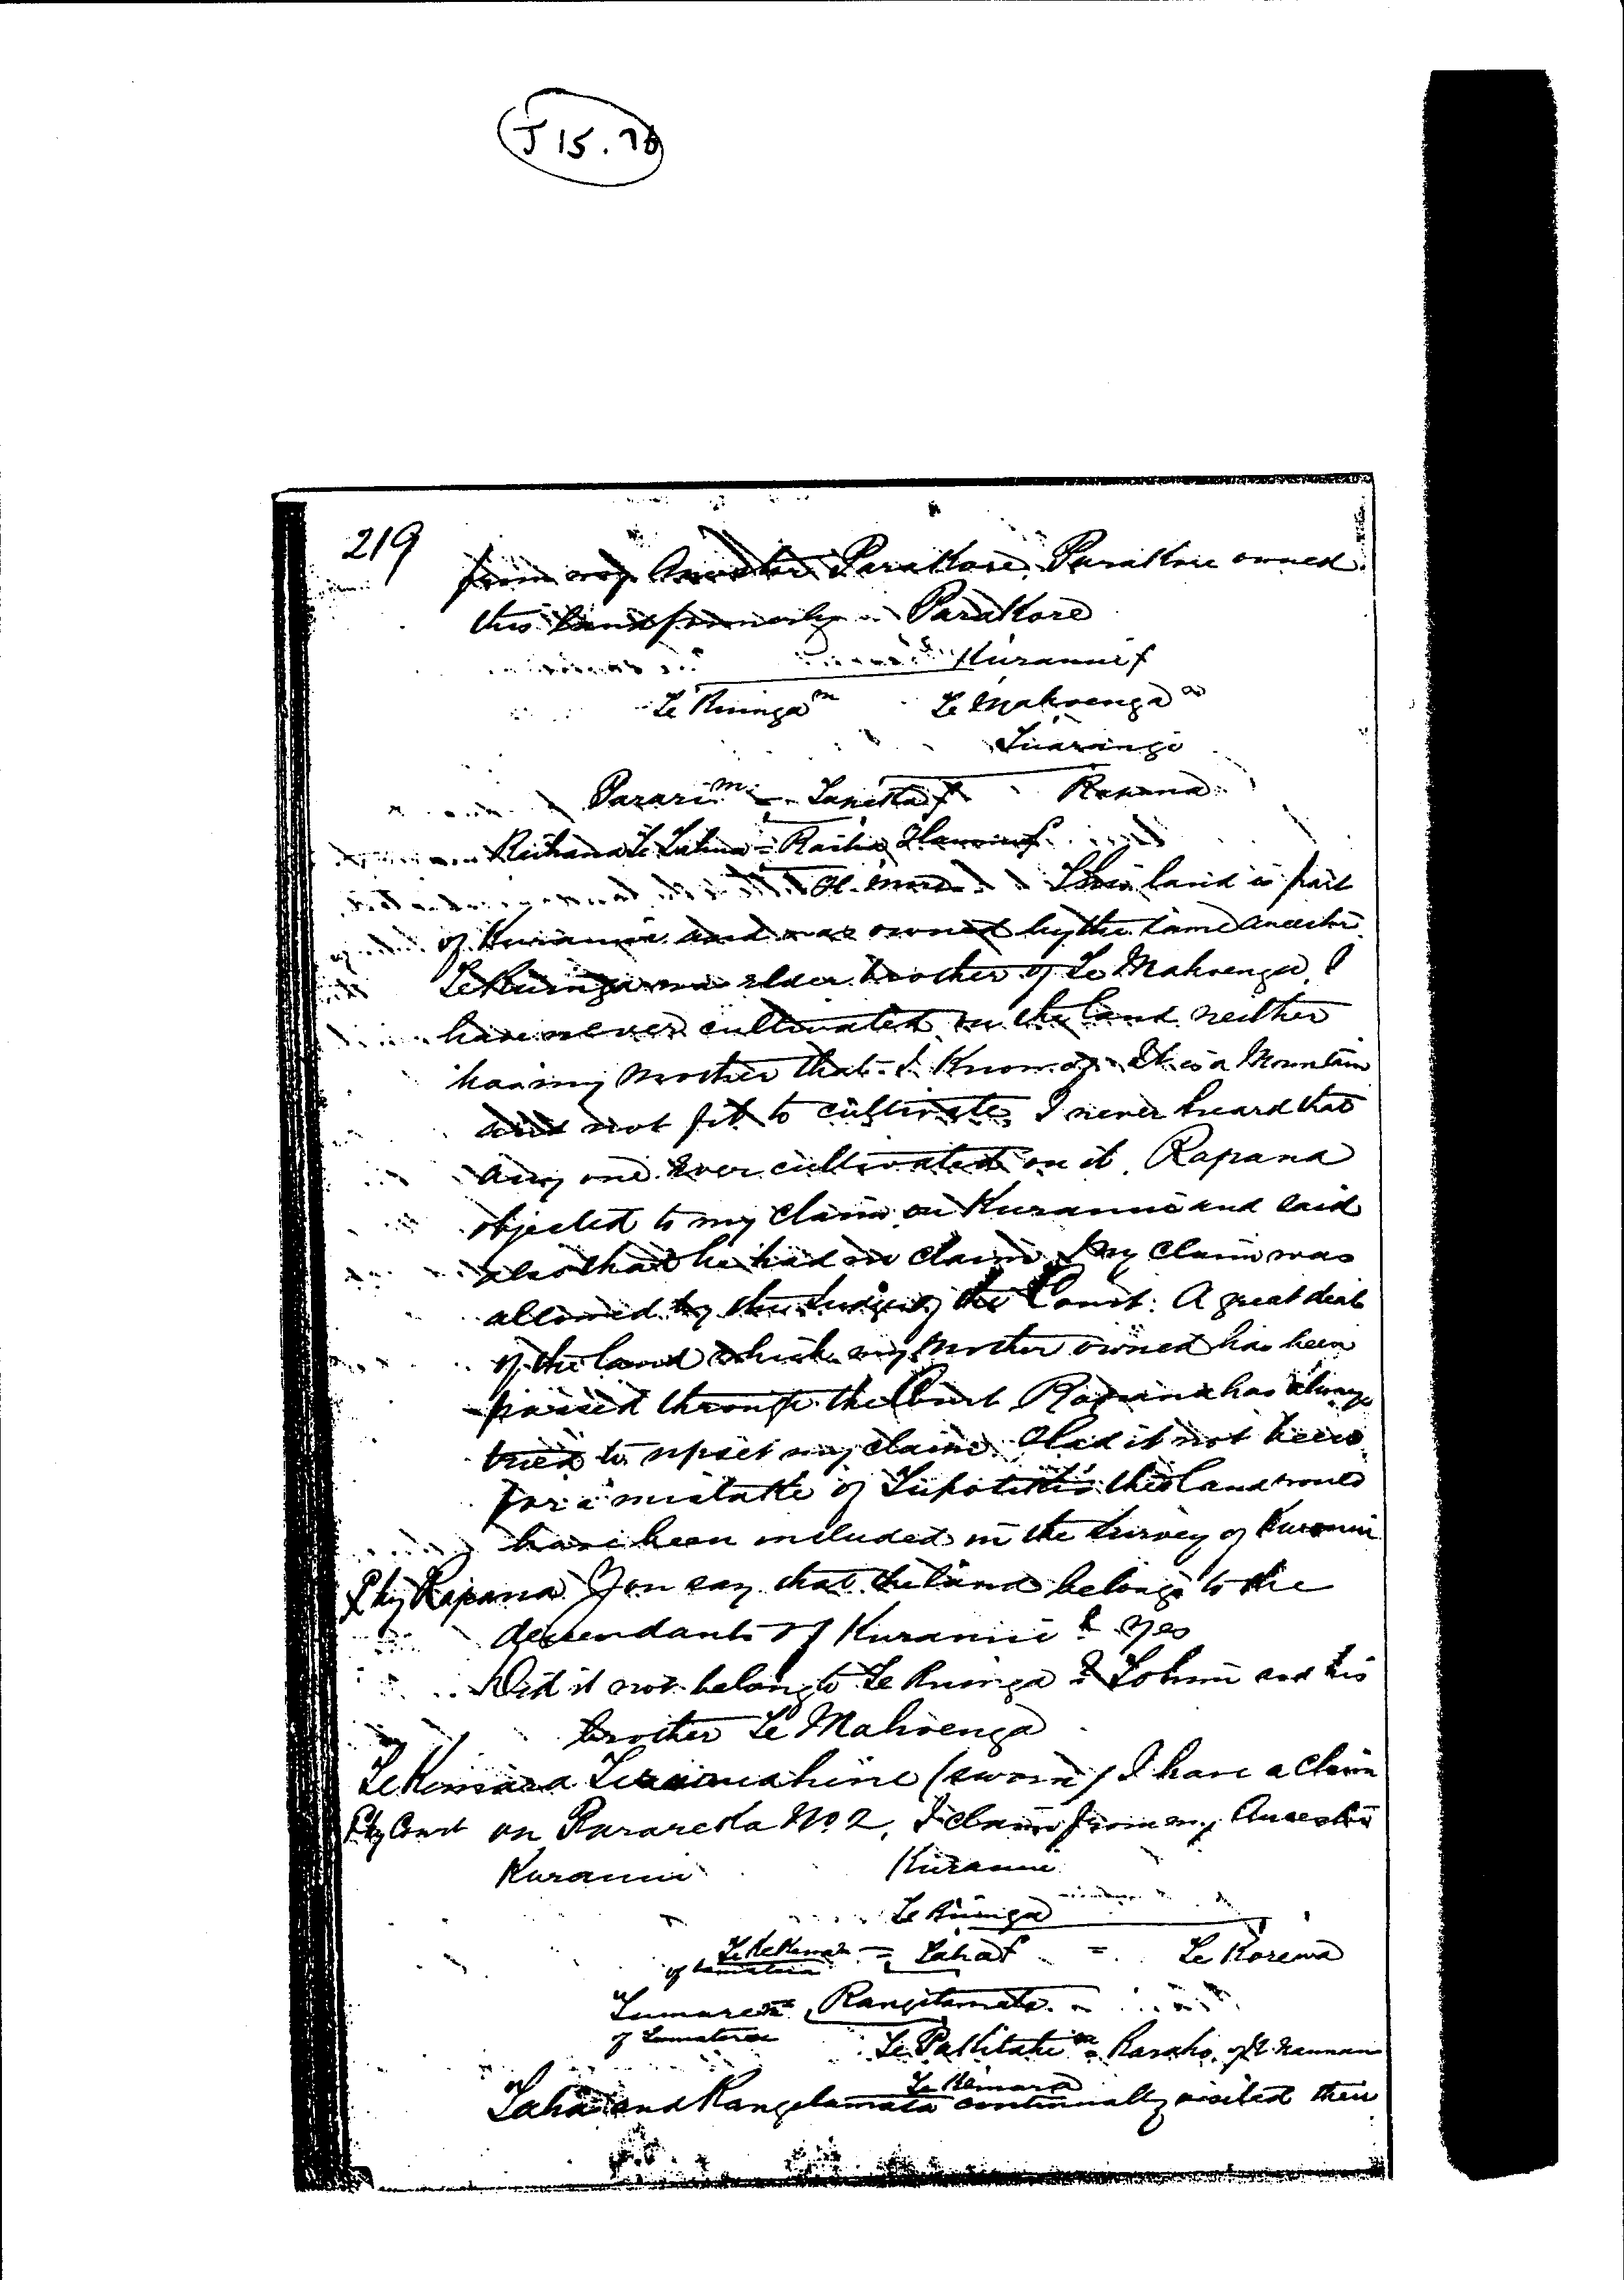 J 15.70
219
from my Ancestor Parakore. Parakore owned
this land formerly Parakore
Kuranui f
Te Ruinga m Te Mahoenga m
Tuarangi
Parari m = f Rapana
Reihana Te = Raiha f
This land is part
of Kuranui and was owned by the same ancestor
Te Ruinga was elder brother of Te Mahoenga. I
have never cultivated on the land neither
has my mother that I know of. It is a Mountain
and not fit to cultivate. I never heard that
any one ever cultivated on it. Rapana
objected to my claim on Kuranui and said
also that he had no claim. My claim was
allowed by the Judge of the Court. A great deal
of the land which my mother owned has been
passed through the Court Rapana has always
tried to upset my claim. Had it not been
for a mistake of the land would
have been included in the survey of Kuranui
by Rapana You say that the land belongs to the
descendants of Kuranui? Yes
Did it not belong to Te Ruinga? To him and his
brother Te Mahoenga
Te Kemara (sworn) I have a claim
by Court on Parareka No 2, I claim from my Ancestor
Kuranui Kuranui
Te Ruinga
= Taha f = Te Korewa
of
Rangitamata
of
Te Pakitahi m = of
Te Kemara
Taha and Rangitamata continually visited their